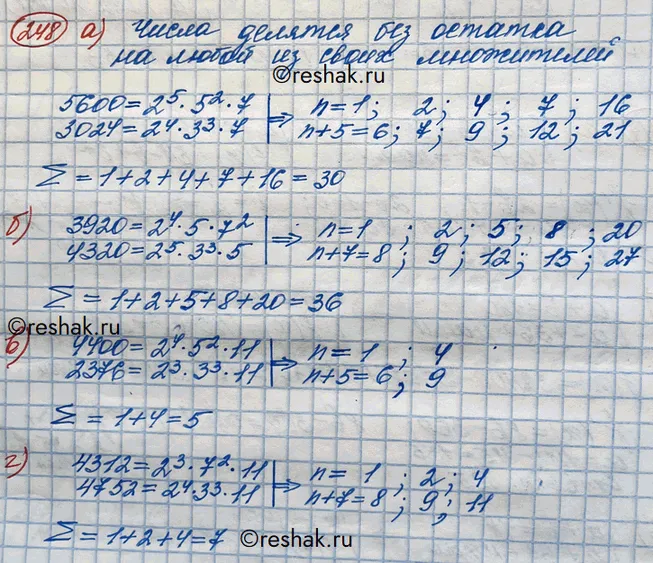 248 а) Числа делятся без остатка
на любой из своих множителей
©reshak.ru
5600 = 2⁵ · 5² · 7 | ⇒ n = 1; 2; 4; 7; 16
3024 = 2⁴ · 3³ · 7 | n+5 = 6; 7; 9; 12; 21
Σ = 1+2+4+7+16 = 30
б) 3920 = 2⁴ · 5 · 7² | ⇒ n = 1; 2; 5; 8; 20
4320 = 2⁵ · 3³ · 5 | n+7 = 8; 9; 12; 15; 27
Σ = 1+2+5+8+20 = 36
©reshak.ru
в) 4400 = 2⁴ · 5² · 11 | ⇒ n = 1; 4
2376 = 2³ · 3³ · 11 | n+5 = 6; 9
Σ = 1+4 = 5
г) 4312 = 2³ · 7² · 11 | ⇒ n = 1; 2; 4
4752 = 2⁴ · 3³ · 11 | n+7 = 8; 9; 11
Σ = 1+2+4 = 7
©reshak.ru